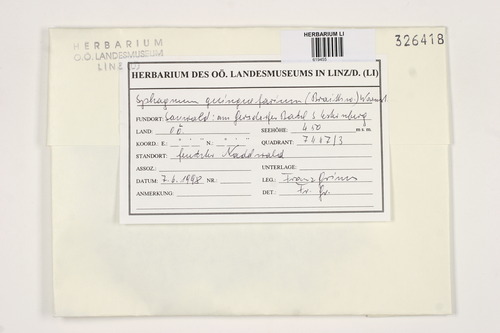 HERBARIUM
O.Ö. LANDESMUSEUM
LINZ
HERBARIUM LI
326418
HERBARIUM DES OÖ. LANDESMUSEUMS IN LINZ/D. (LI)
Sphagnum quinquefarium (Braithw.) Warnst.
FUNDORT: Sauwald: am
LAND: OÖ SEEHÖHE: 450 m s. m.
KOORD.: E: N: QUADRANT: 7447/3
STANDORT: feuchter Nadelwald
ASSOZ.: UNTERLAGE:
DATUM: 7.6.1998 NR.: LEG.: Franz Grims
ANMERKUNG: DET.: Fr. Gr.